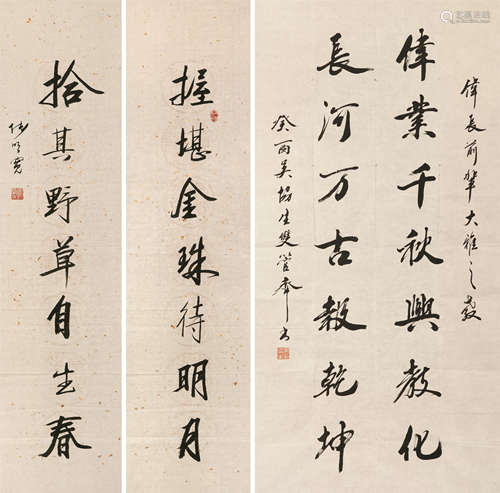 偉長前輩大雅之教
偉業千秋興教化
長河万古穀乾坤
癸丙吴協生雙管奉书
握堪金珠待明月
拾其野草自生春